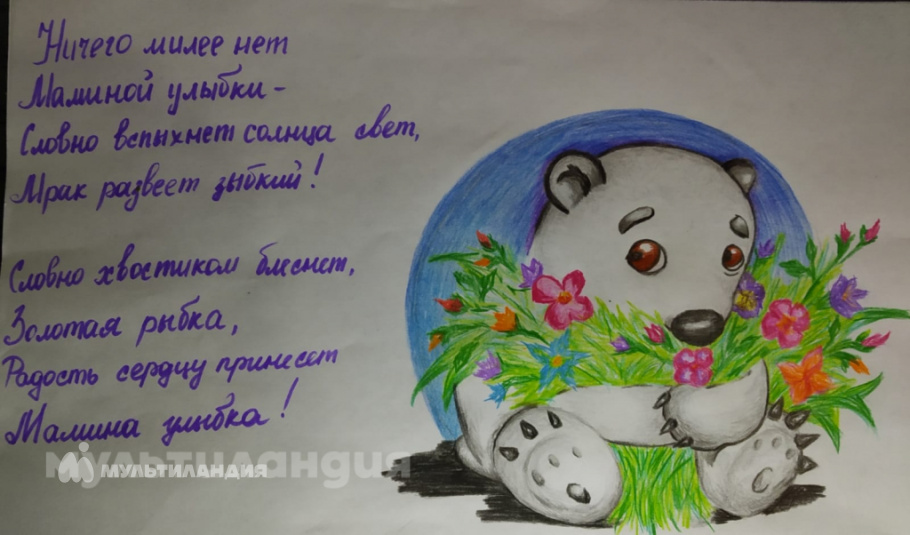 Ничего милее нет
Маминой улыбки-
Словно вспыхнет солнца свет,
Мрак развеет зыбкий!
Словно хвостиком блеснет,
Золотая рыбка,
Радость сердцу принесет
Мамина улыбка!
мультиландия
МУЛЬТИЛАНДИЯ